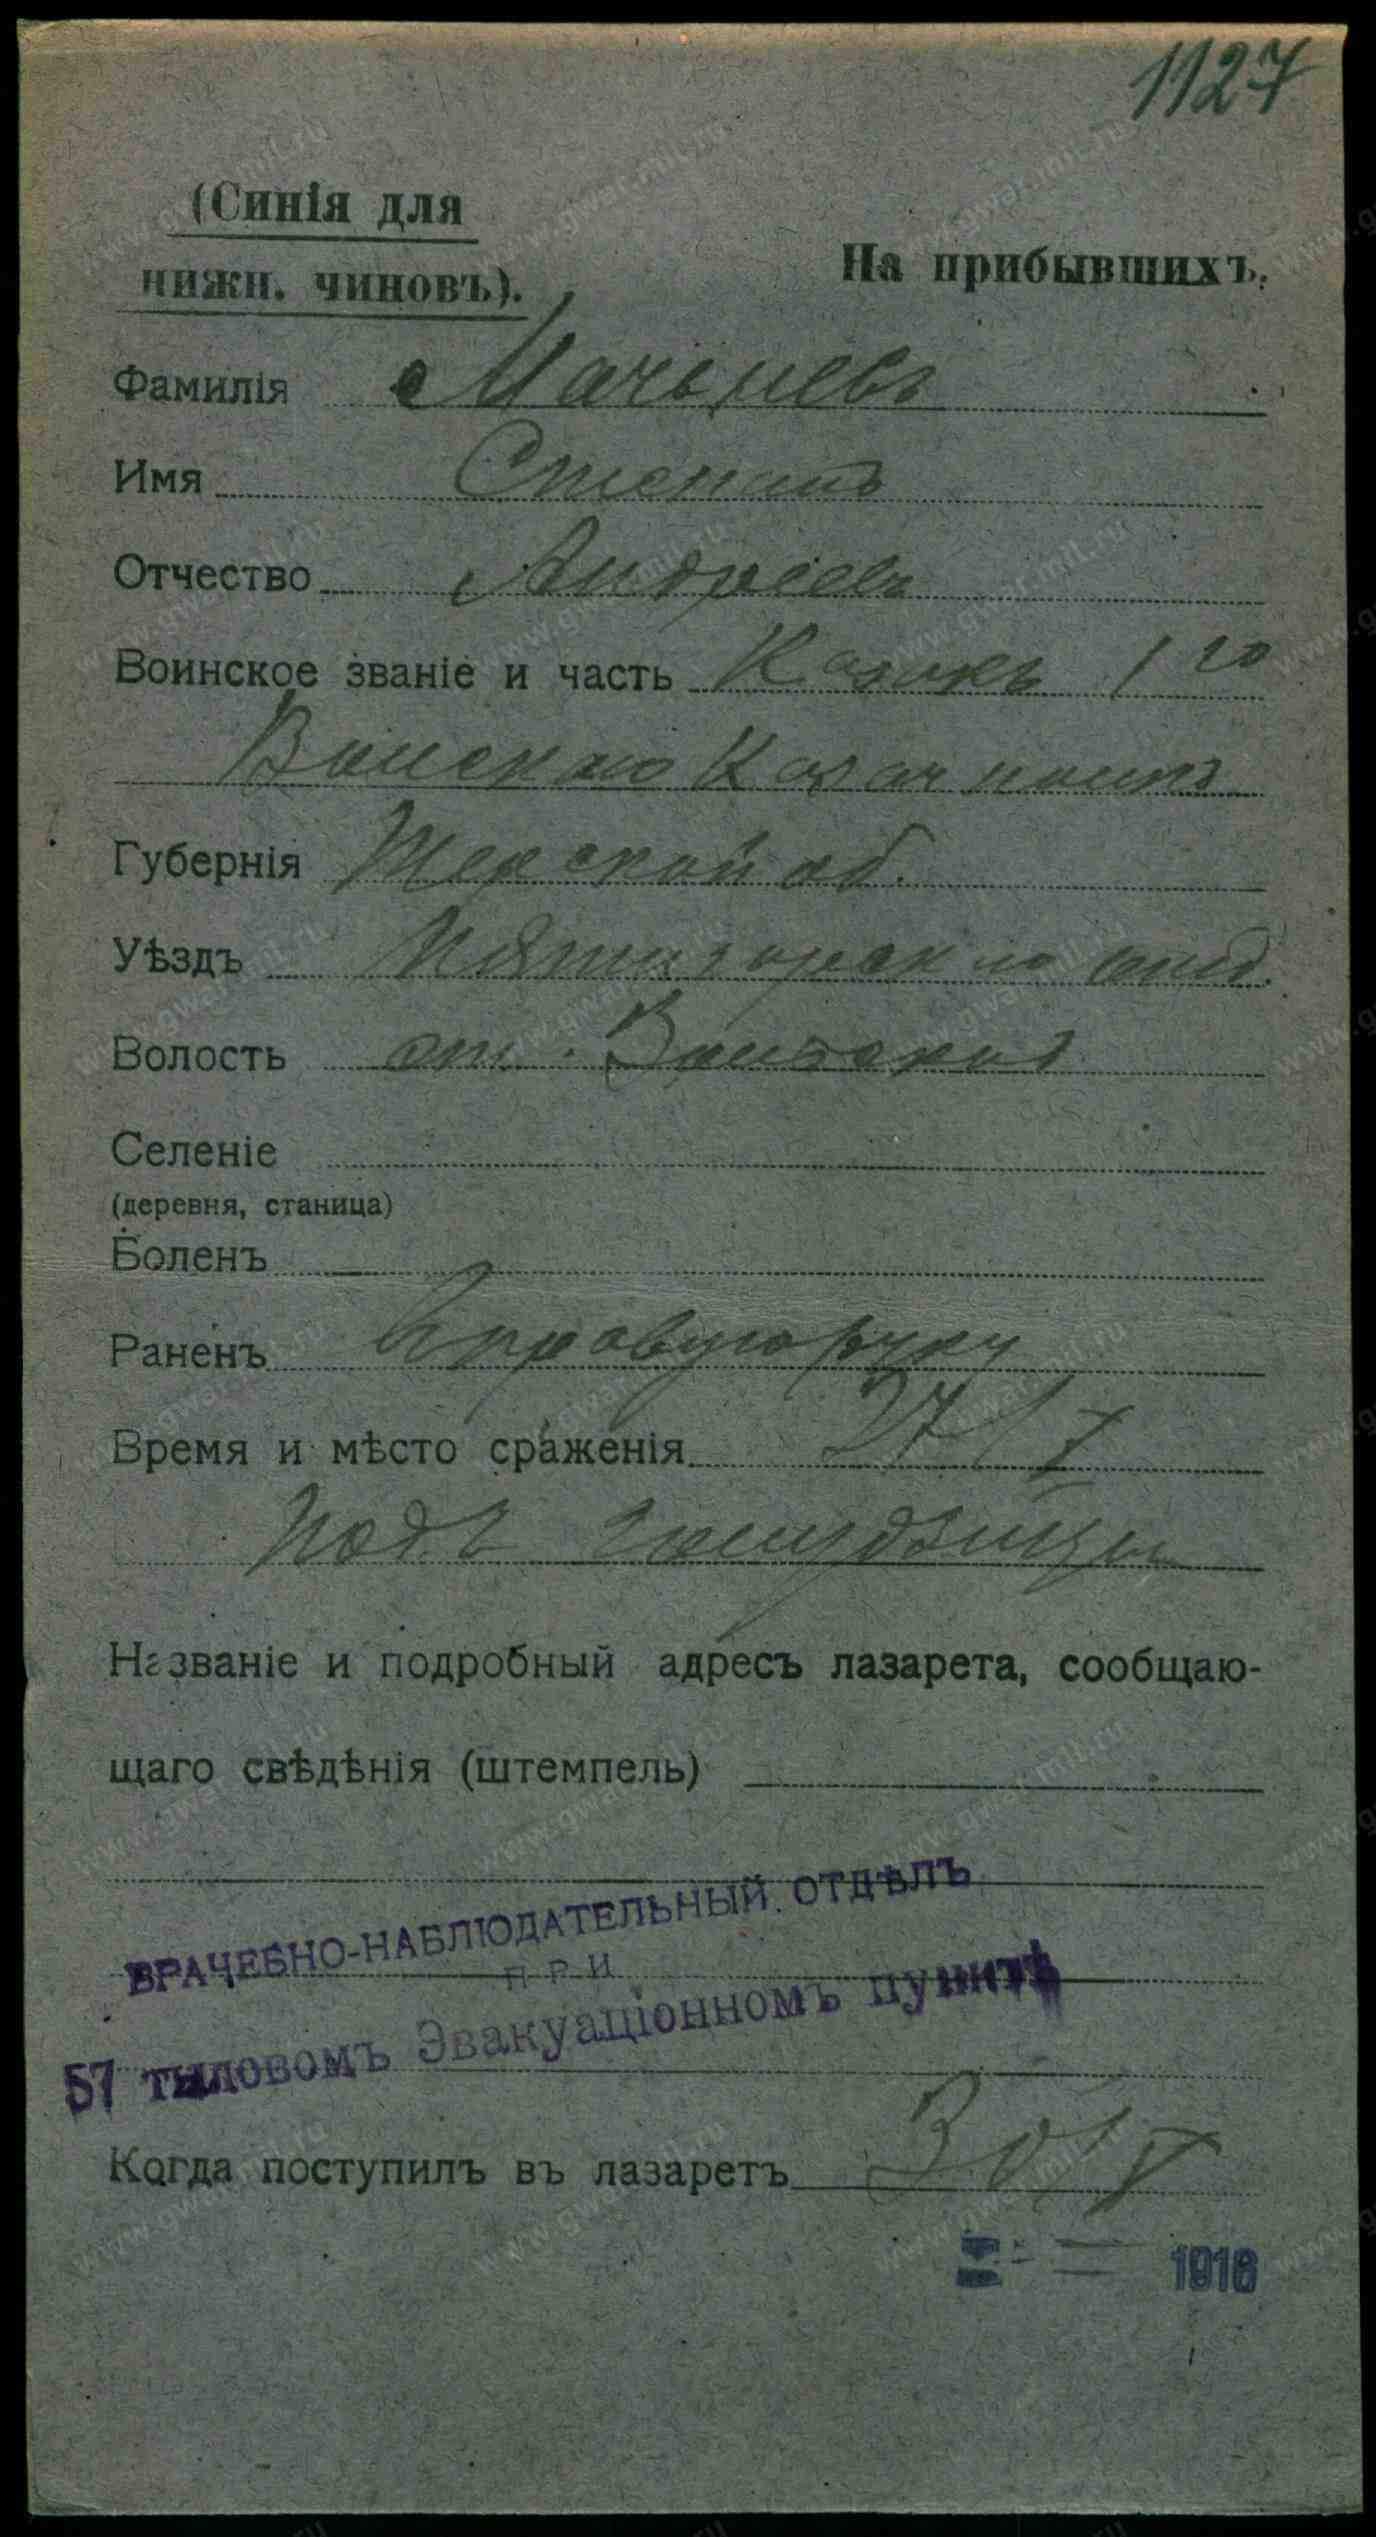 1127
(Синія для
нижн. чиновъ).
На прибывшихъ.
Фамилія
Имя Степанъ
Отчество Андреевъ
Воинское званіе и часть Казакъ 1 го
Казач
Губернія Терской об.
Уѣздъ Пятигорск го отд.
Волость ст.
Селеніе
(деревня, станица)
Боленъ
Раненъ В правую руку
Время и мѣсто сраженія 27/
Подъ
Названіе и подробный адресъ лазарета, сообщаю-
щаго свѣдѣнія (штемпель)
ВРАЧЕБНО-НАБЛЮДАТЕЛЬНЫЙ ОТДѢЛЪ
ПРИ
57 тыловомъ Эвакуаціонномъ пунктѣ
Когда поступилъ въ лазаретъ 30/V
1916